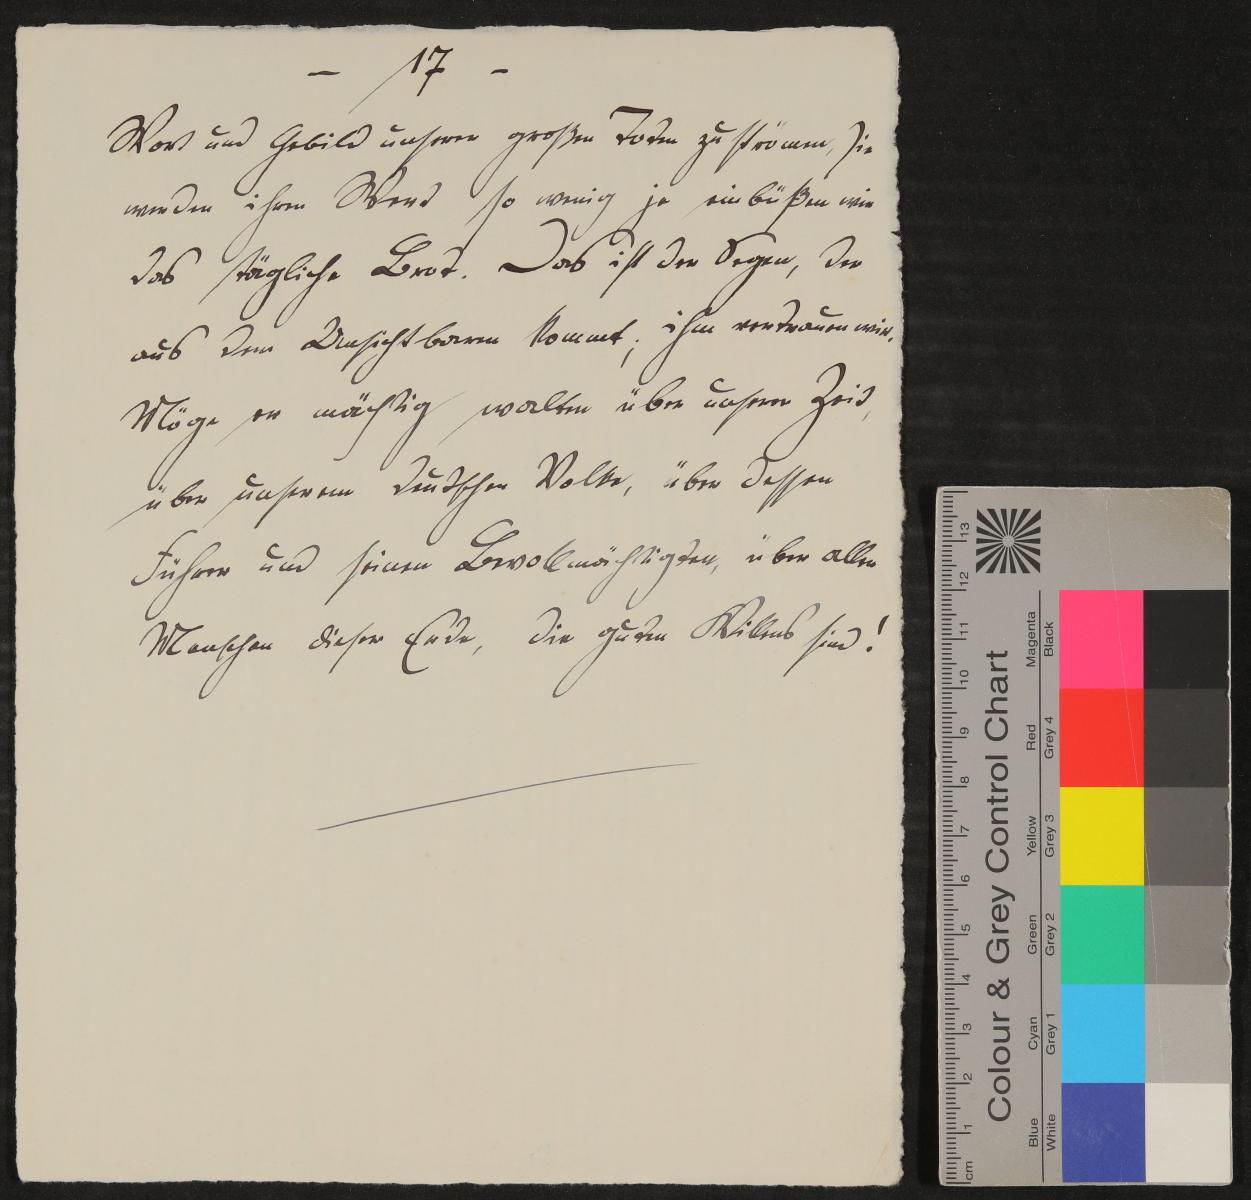 - 17 -
Wort und Gebild unserer großen Toten zuströmen, sie
werden ihren Wert so wenig je einbüßen wie
das tägliche Brot. Das ist der Segen, der
aus dem Unsichtbaren kommt; ihm vertrauen wir.
Möge er mächtig walten über unserer Zeit,
über unserem deutschen Volke, über dessen
Führer und seinen Bevollmächtigten, über allen
Menschen dieser Erde, die guten Willens sind!
Colour & Grey Control Chart
Blue Cyan Green Yellow Red Magenta
White Grey 1 Grey 2 Grey 3 Grey 4 Black
cm 1 2 3 4 5 6 7 8 9 10 11 12 13